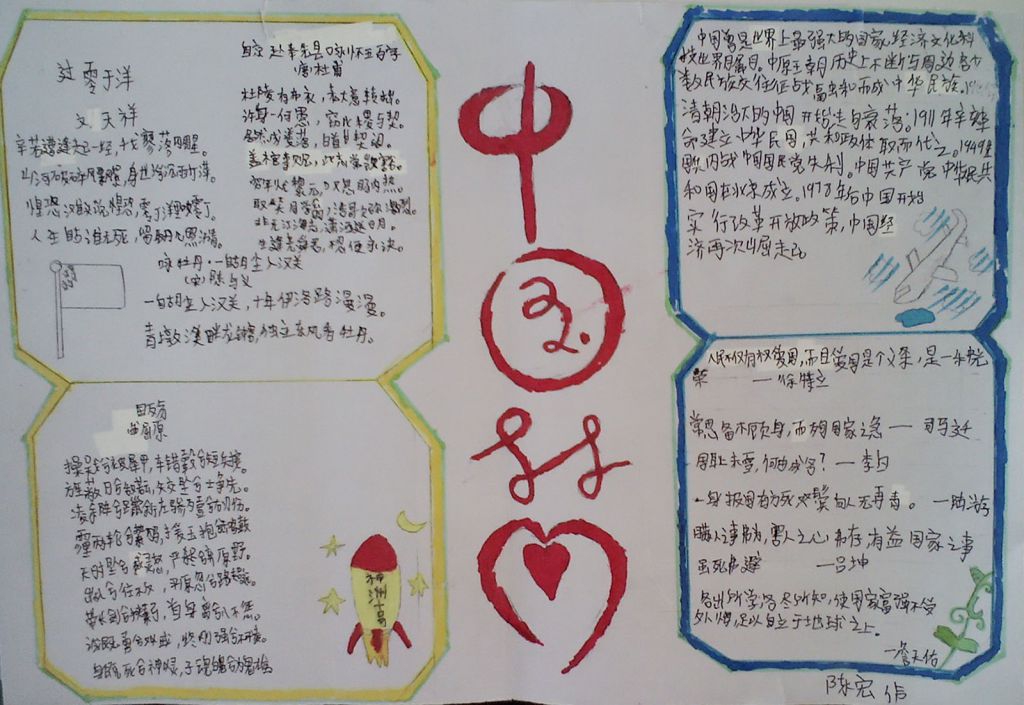 过零丁洋
文天祥
辛苦遭逢起一经,干戈寥落四周星。
山河破碎风飘絮,身世浮沉雨打萍。
惶恐滩头说惶恐,零丁洋里叹零丁。
人生自古谁无死,留取丹心照汗青。
自京赴奉先县咏怀五百字
唐 杜甫
杜陵有布衣,老大意转拙。
许身一何愚,窃比稷与契。
居然成濩落,白首甘契阔。
盖棺事则已,此志常觊豁。
穷年忧黎元,叹息肠内热。
取笑同学翁,浩歌弥激烈。
非无江海志,潇洒送日月。
生逢尧舜君,不忍便永诀。
咏牡丹·一自胡尘入汉关
(宋)陈与义
一自胡尘入汉关,十年伊洛路漫漫。
青墩溪畔龙钟客,独立东风看牡丹。
国殇
屈原
操吴戈兮被犀甲,车错毂兮短兵接。
旌蔽日兮敌若云,矢交坠兮士争先。
凌余阵兮躐余行,左骖殪兮右刃伤。
霾两轮兮絷四马,援玉枹兮击鸣鼓
天时坠兮威灵怒,严杀尽兮弃原野。
出不入兮往不反,平原忽兮路超远。
带长剑兮挟秦弓,首身离兮心不惩。
诚既勇兮又以武,终刚强兮不可凌。
身既死兮神以灵,子魂魄兮为鬼雄
神洲十号
中
国
心
中国曾是世界上最强大的国家,经济文化科
技世界瞩目,中原王朝历史上不断与周边各少
数民族交往征战 融和而成中华民族。
清朝治下的中国开始走向衰落。1911年辛亥革
命建立中华民国,共和政体取而代之。1949年
国共内战中国国民党失利。中国共产党中华人民共
和国在北京成立。1978年后中国开始
实行改革开放政策,中国经
济再次崛起
人民不仅有权爱国,而且爱国是个义务,是一种光
荣 —徐特立
常思奋不顾身,而殉国家之急 — 司马迁
国耻未雪,何由成名? —李白
一身报国有万死 双鬓向人无再青。 —陆游
瞒人之事弗为,害人之心弗存,有益国家之事
虽死弗避 —吕坤
各出所学,各尽所知,使国家富强不受
外侮,足以自立于地球之上。
—詹天佑
陈宏 作